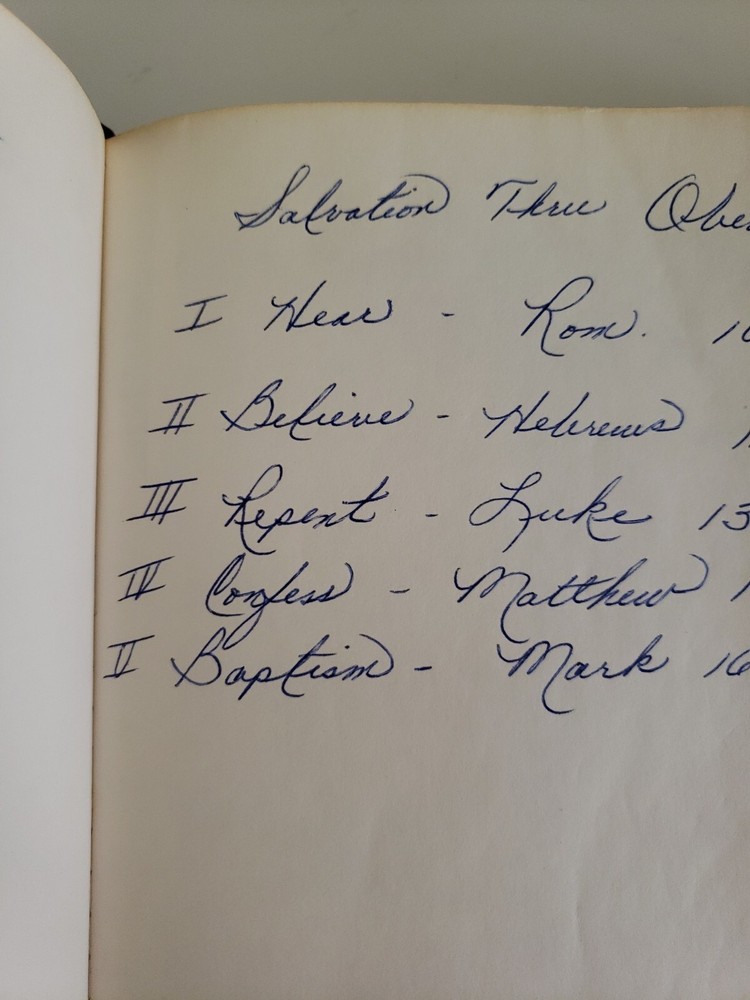 Salvation Thru Obe
I Hear - Rom. 10
II Believe - Hebrews 1
III Repent - Luke 13
IV Confess - Matthew 1
V Baptism - Mark 16